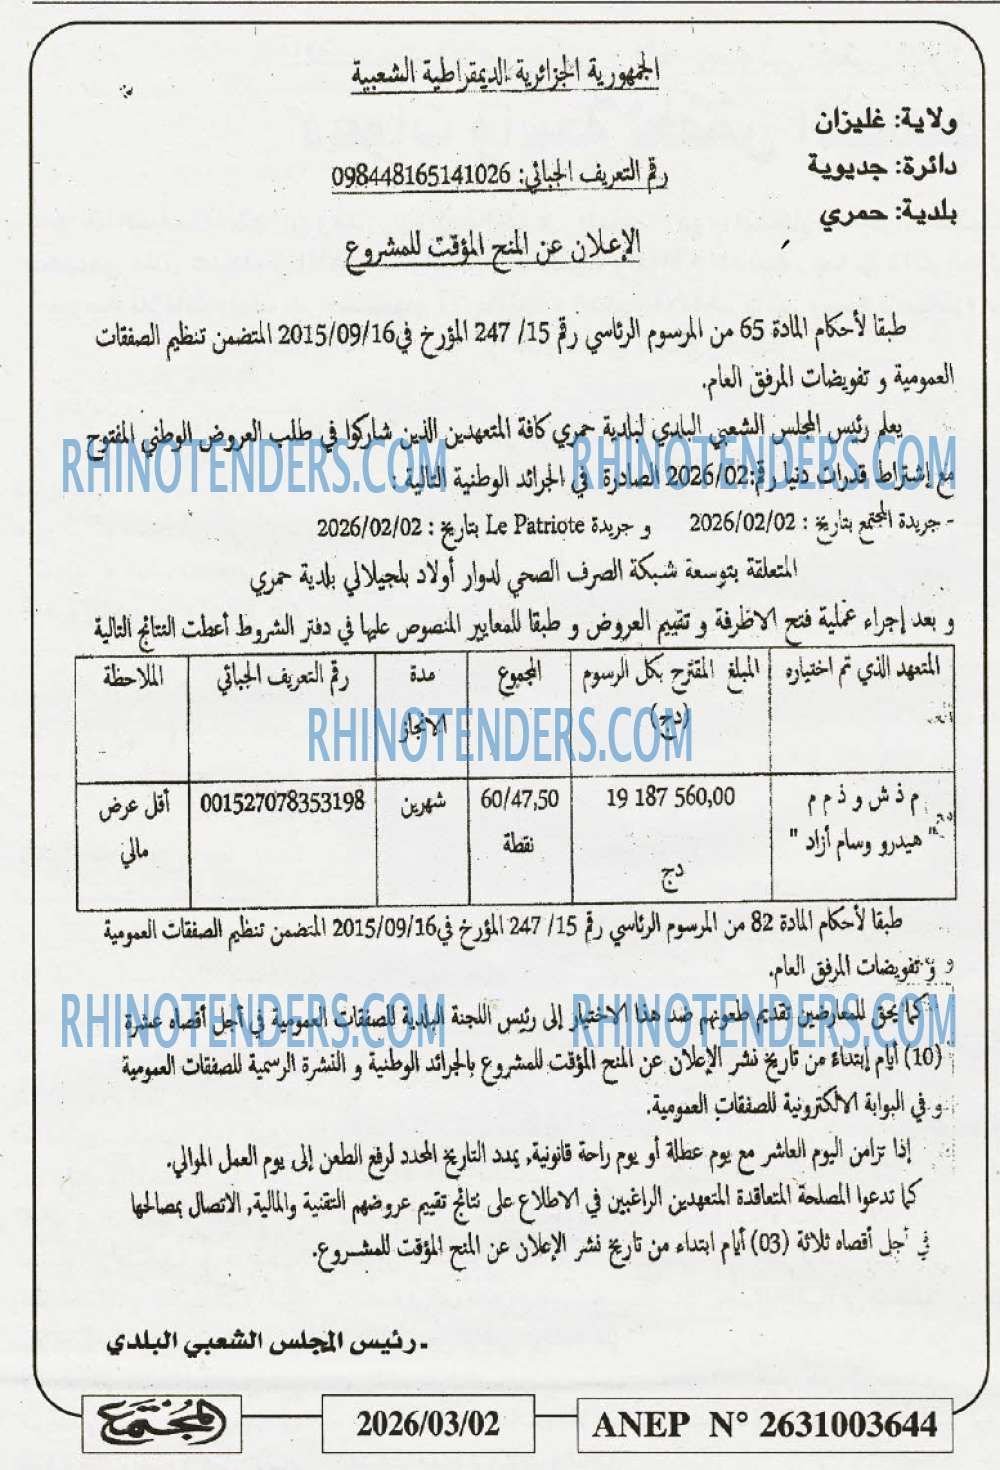 الجمهورية الجزائرية الديمقراطية الشعبية
ولاية: غليزان
دائرة: جديوية
رقم التعريف الجبائي: 098448165141026
بلدية: حمري
الإعلان عن المنح المؤقت للمشروع
طبقا لأحكام المادة 65 من المرسوم الرئاسي رقم 15/ 247 المؤرخ في2015/09/16 المتضمن تنظيم الصفقات
العمومية و تفويضات المرفق العام.
يعلم رئيس المجلس الشعبي البلدي لبلدية حمري كافة المتعهدين الذين شاركوا في طلب العروض الوطني المفتوح
مع إشتراط قدرات دنيا رقم:2026/02 الصادرة في الجرائد الوطنية التالية :
- جريدة المجتمع بتاريخ : 2026/02/02 و جريدة Le Patriote بتاريخ : 2026/02/02
المتعلقة بتوسعة شبكة الصرف الصحي لدوار أولاد بلجيلالي بلدية حمري
و بعد إجراء عملية فتح الاظرفة و تقييم العروض و طبقا للمعايير المنصوص عليها في دفتر الشروط أعطت النتائج التالية
المتعهد الذي تم اختياره | المبلغ المقترح بكل الرسوم (دج) | المجموع | مدة الانجاز | رقم التعريف الجبائي | الملاحظة
م ذ ش و ذ م م " هيدرو وسام أزاد " | 19 187 560,00 دج | 60/47,50 نقطة | شهرين | 001527078353198 | أقل عرض مالي
طبقا لأحكام المادة 82 من المرسوم الرئاسي رقم 15/ 247 المؤرخ في2015/09/16 المتضمن تنظيم الصفقات العمومية
و تفويضات المرفق العام.
كما يحق للمعارضين تقديم طعونهم ضد هذا الاختيار إلى رئيس اللجنة البلدية للصفقات العمومية في أجل أقصاه عشرة
(10) أيام إبتداء من تاريخ نشر الإعلان عن المنح المؤقت للمشروع بالجرائد الوطنية و النشرة الرسمية للصفقات العمومية
و في البوابة الالكترونية للصفقات العمومية.
إذا تزامن اليوم العاشر مع يوم عطلة أو يوم راحة قانونية, يمدد التاريخ المحدد لرفع الطعن إلى يوم العمل الموالي.
كما تدعوا المصلحة المتعاقدة المتعهدين الراغبين في الاطلاع على نتائج تقييم عروضهم التقنية والمالية, الاتصال بمصالحها
في أجل أقصاه ثلاثة (03) أيام ابتداء من تاريخ نشر الإعلان عن المنح المؤقت للمشروع.
رئيس المجلس الشعبي البلدي
المجتمع
2026/03/02
ANEP N° 2631003644
RHINOTENDERS.COM
RHINOTENDERS.COM
RHINOTENDERS.COM
RHINOTENDERS.COM
RHINOTENDERS.COM